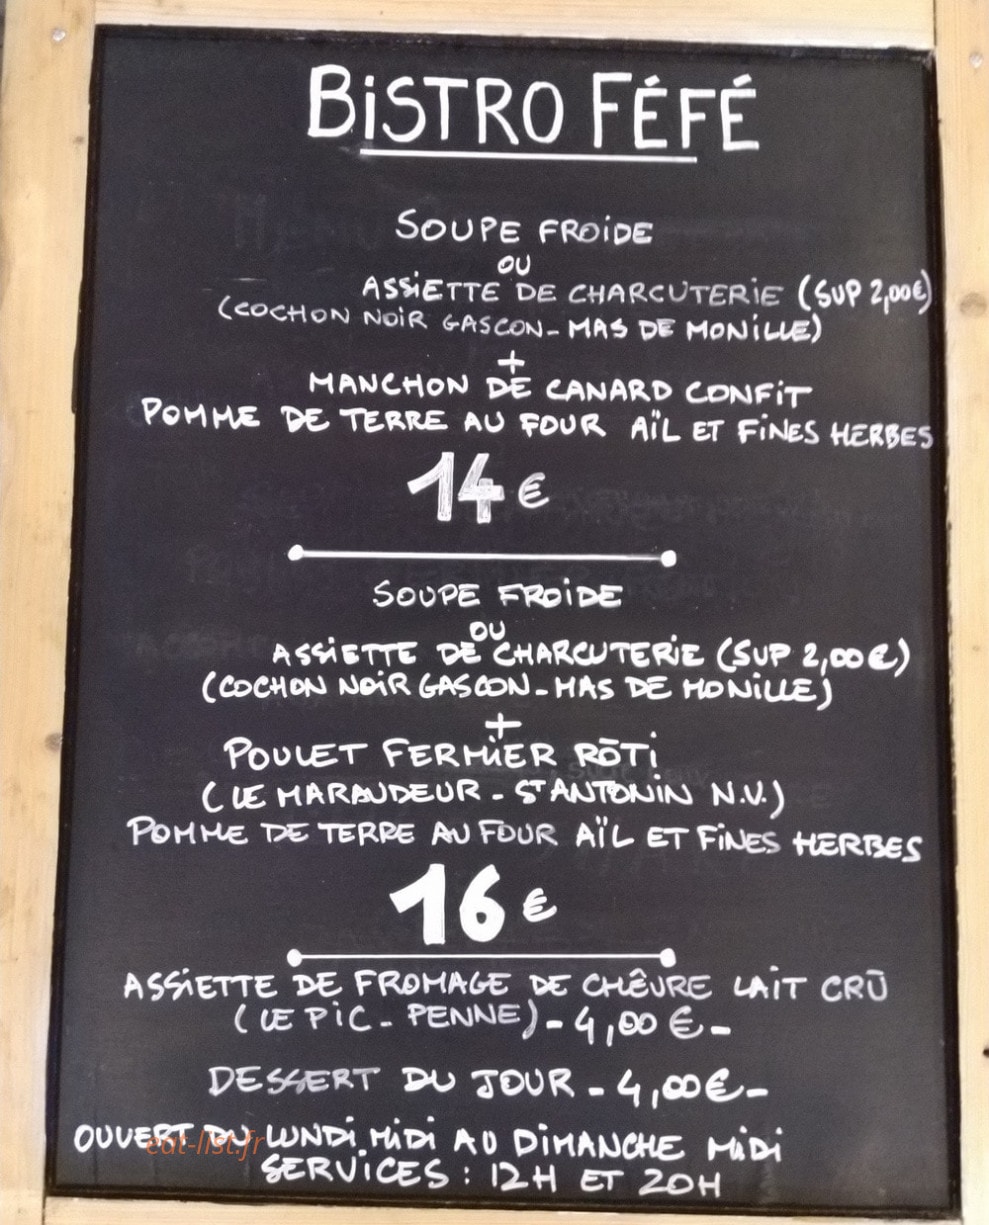 BiSTRO FÉFÉ
SOUPE FROiDE
OU
ASSiETTE DE CHARCUTERiE (SUP 2,00€)
(COCHON NOiR GASCON - MAS DE MONiLLE)
+
MANCHON DE CANARD CONFiT
POMME DE TERRE AU FOUR AÏL ET FiNES HERBES
14 €
SOUPE FROiDE
OU
ASSiETTE DE CHARCUTERiE (SUP 2,00€)
(COCHON NOiR GASCON - MAS DE MONiLLE)
+
POULET FERMiER RŌTi
(LE MARAUDEUR - ST ANTONiN N.V.)
POMME DE TERRE AU FOUR AÏL ET FiNES HERBES
16 €
ASSiETTE DE FROMAGE DE CHÊVRE LAiT CRŪ
(LE PiC - PENNE) - 4,00 € -
DESSERT DU JOUR - 4,00€ -
OUVERT DU LUNDi MiDi AU DiMANCHE MiDi
eat-list.fr
SERViCES : 12H ET 20H